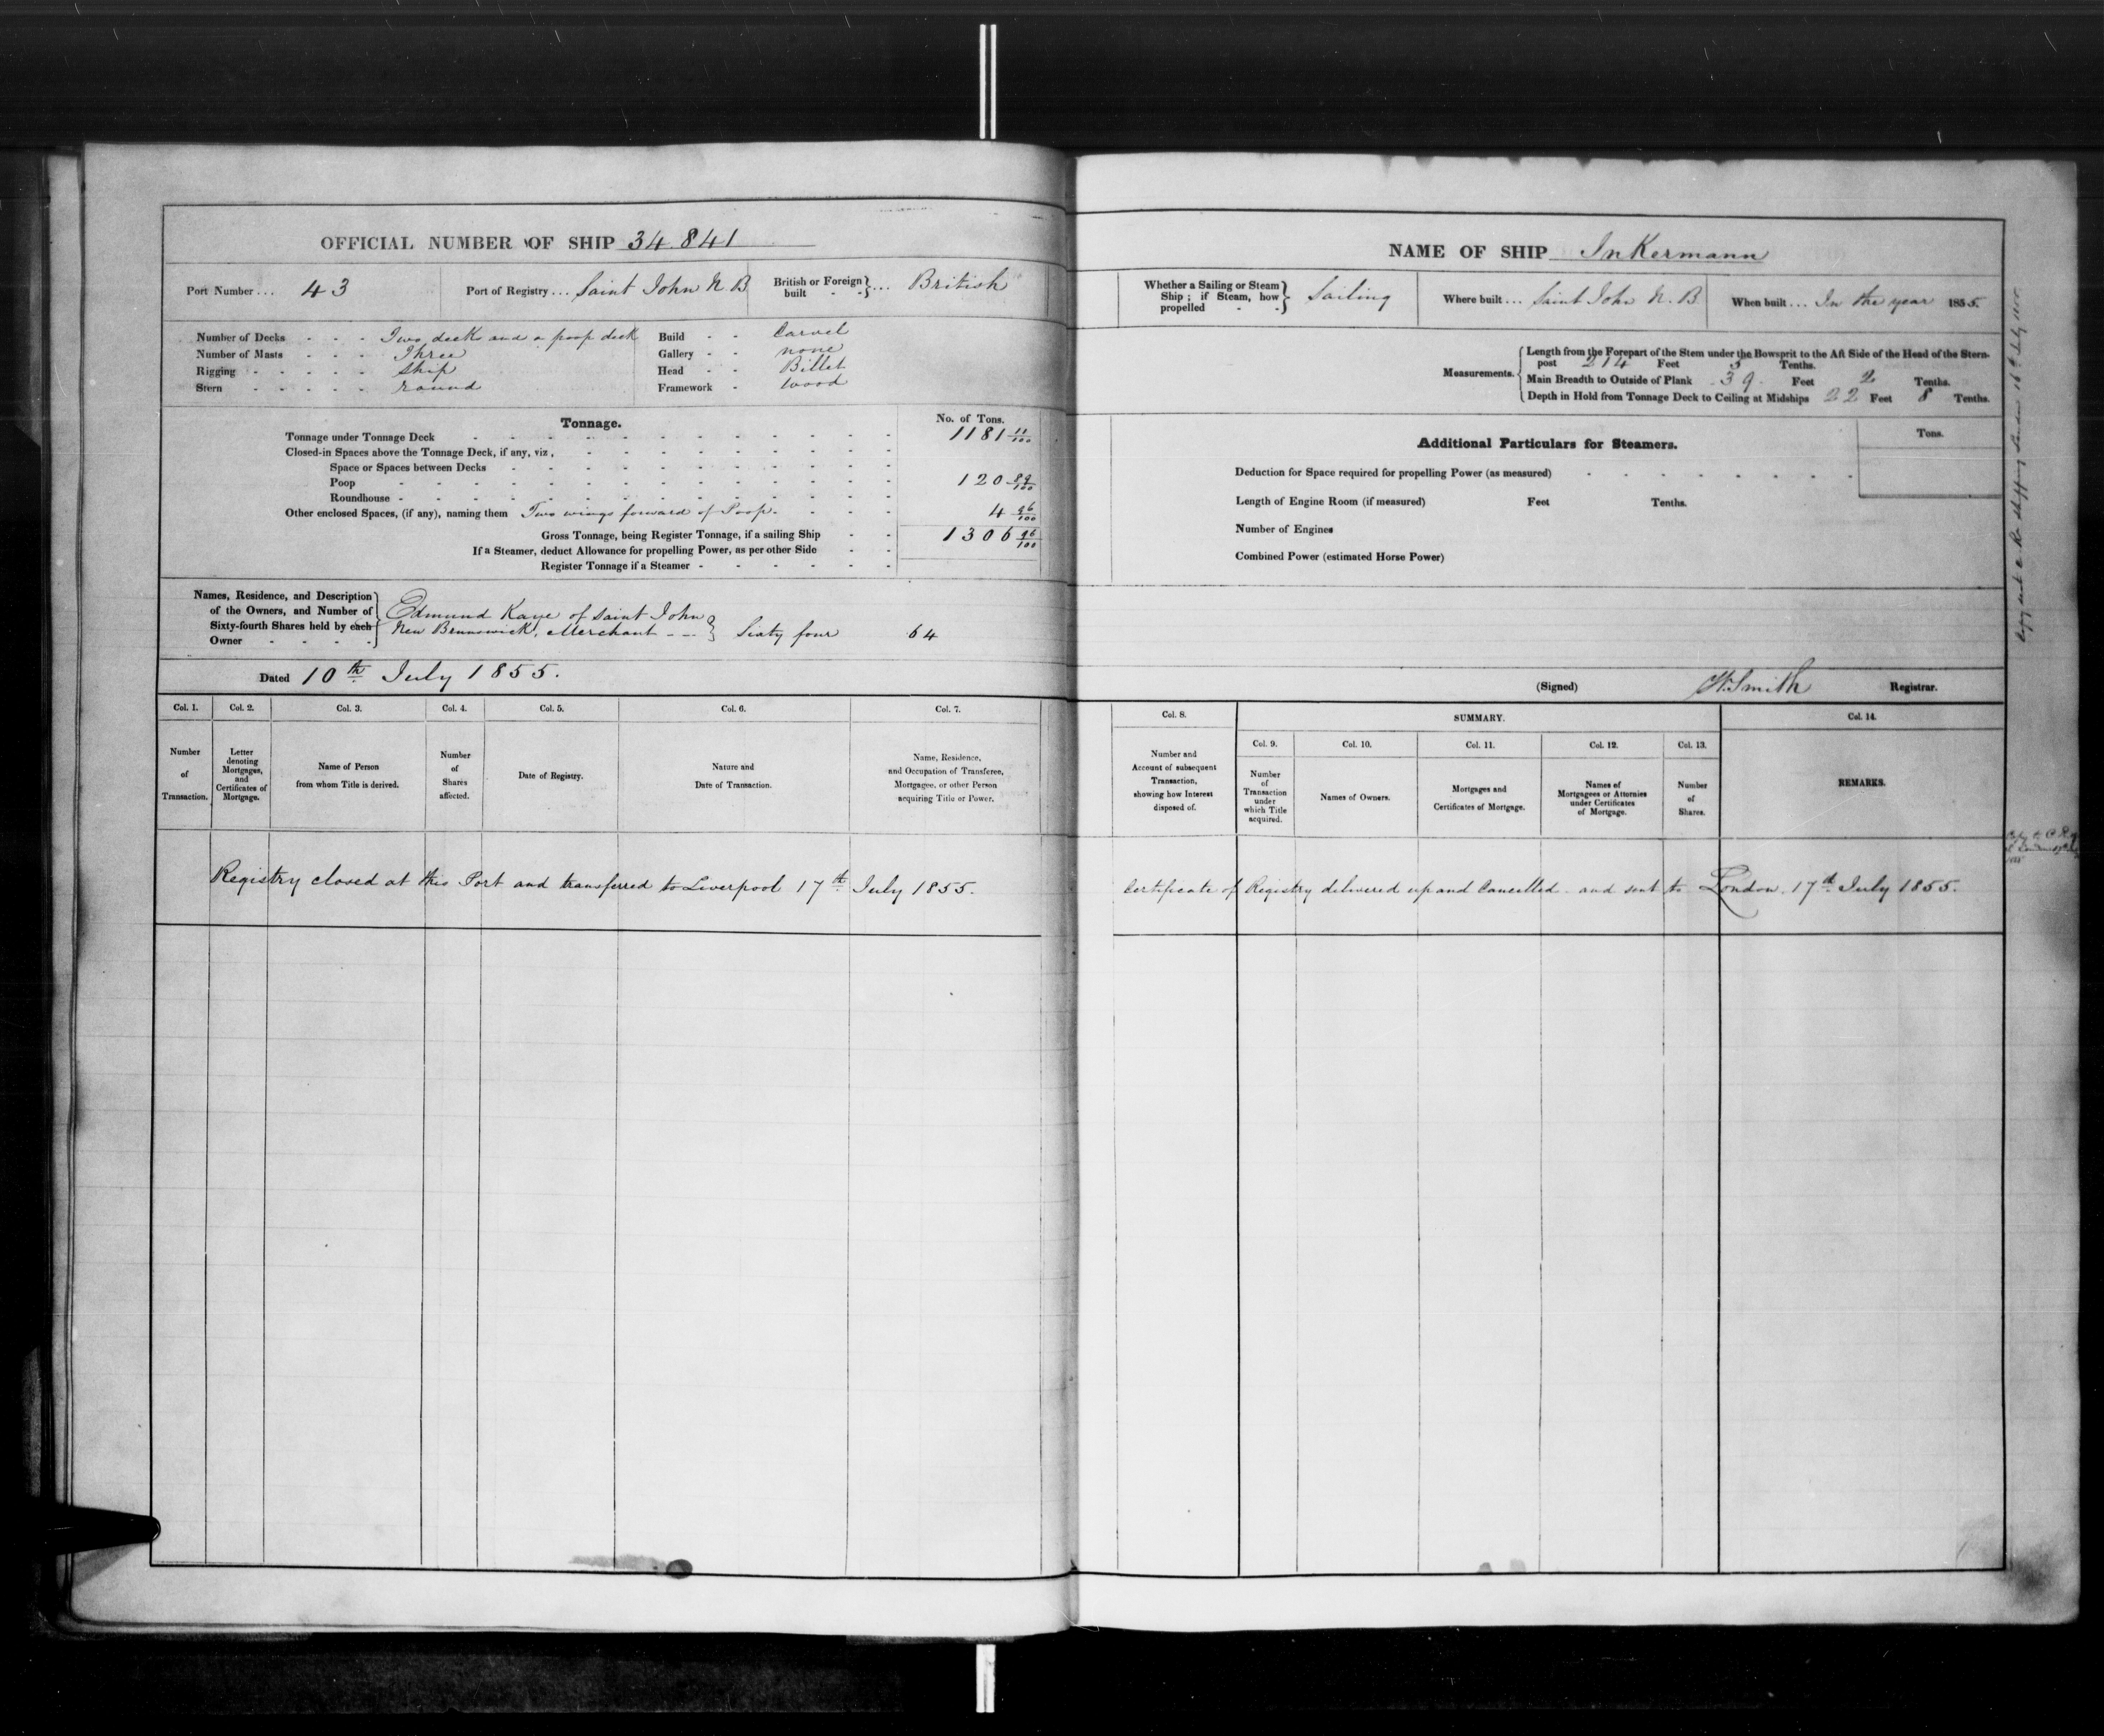 OFFICIAL NUMBER OF SHIP 34.841
Port Number ... 43
Port of Registry ... Saint John N B
British or Foreign built - - } ... British
Number of Decks - - - Two decks and a poop deck
Number of Masts - - - Three
Rigging - - - - - Ship
Stern - - - - - round
Build - - Carvel
Gallery - - none
Head - - Billet
Framework - Wood
Tonnage.
No. of Tons.
Tonnage under Tonnage Deck 1181 11/100
Closed-in Spaces above the Tonnage Deck, if any, viz.
Space or Spaces between Decks
Poop 120 89/100
Roundhouse
Other enclosed Spaces, (if any), naming them Two wings forward of Poop. 4 96/100
Gross Tonnage, being Register Tonnage, if a sailing Ship 1306 96/100
If a Steamer, deduct Allowance for propelling Power, as per other Side
Register Tonnage if a Steamer
Names, Residence, and Description
of the Owners, and Number of
Sixty-fourth Shares held by each
Owner
Edmund Kaye of Saint John
New Brunswick, Merchant - - } Sixty four 64
Dated 10th July 1855.
Col. 1. Col. 2. Col. 3. Col. 4. Col. 5. Col. 6. Col. 7.
Number of Transaction.
Letter denoting Mortgages, and Certificates of Mortgage.
Name of Person from whom Title is derived.
Number of Shares affected.
Date of Registry.
Nature and Date of Transaction.
Name, Residence, and Occupation of Transferee, Mortgagee, or other Person acquiring Title or Power.
Registry closed at this Port and transferred to Liverpool 17th July 1855.
NAME OF SHIP InKermann
Whether a Sailing or Steam
Ship; if Steam, how
propelled - - } Sailing
Where built ... Saint John N. B
When built ... In the year 1855.
Measurements.
Length from the Forepart of the Stem under the Bowsprit to the Aft Side of the Head of the Stern-
post 214 Feet 3 Tenths.
Main Breadth to Outside of Plank 39 Feet 2 Tenths.
Depth in Hold from Tonnage Deck to Ceiling at Midships 22 Feet 8 Tenths.
Additional Particulars for Steamers.
Tons.
Deduction for Space required for propelling Power (as measured)
Length of Engine Room (if measured) Feet Tenths.
Number of Engines
Combined Power (estimated Horse Power)
(Signed) W. Smith Registrar.
Col. 8.
SUMMARY.
Col. 14.
Col. 9. Col. 10. Col. 11. Col. 12. Col. 13.
Number and Account of subsequent Transaction, showing how Interest disposed of.
Number of Transaction under which Title acquired.
Names of Owners.
Mortgages and Certificates of Mortgage.
Names of Mortgagees or Attornies under Certificates of Mortgage.
Number of Shares.
REMARKS.
Certificate of Registry delivered up and Cancelled and sent to London. 17th July 1855.